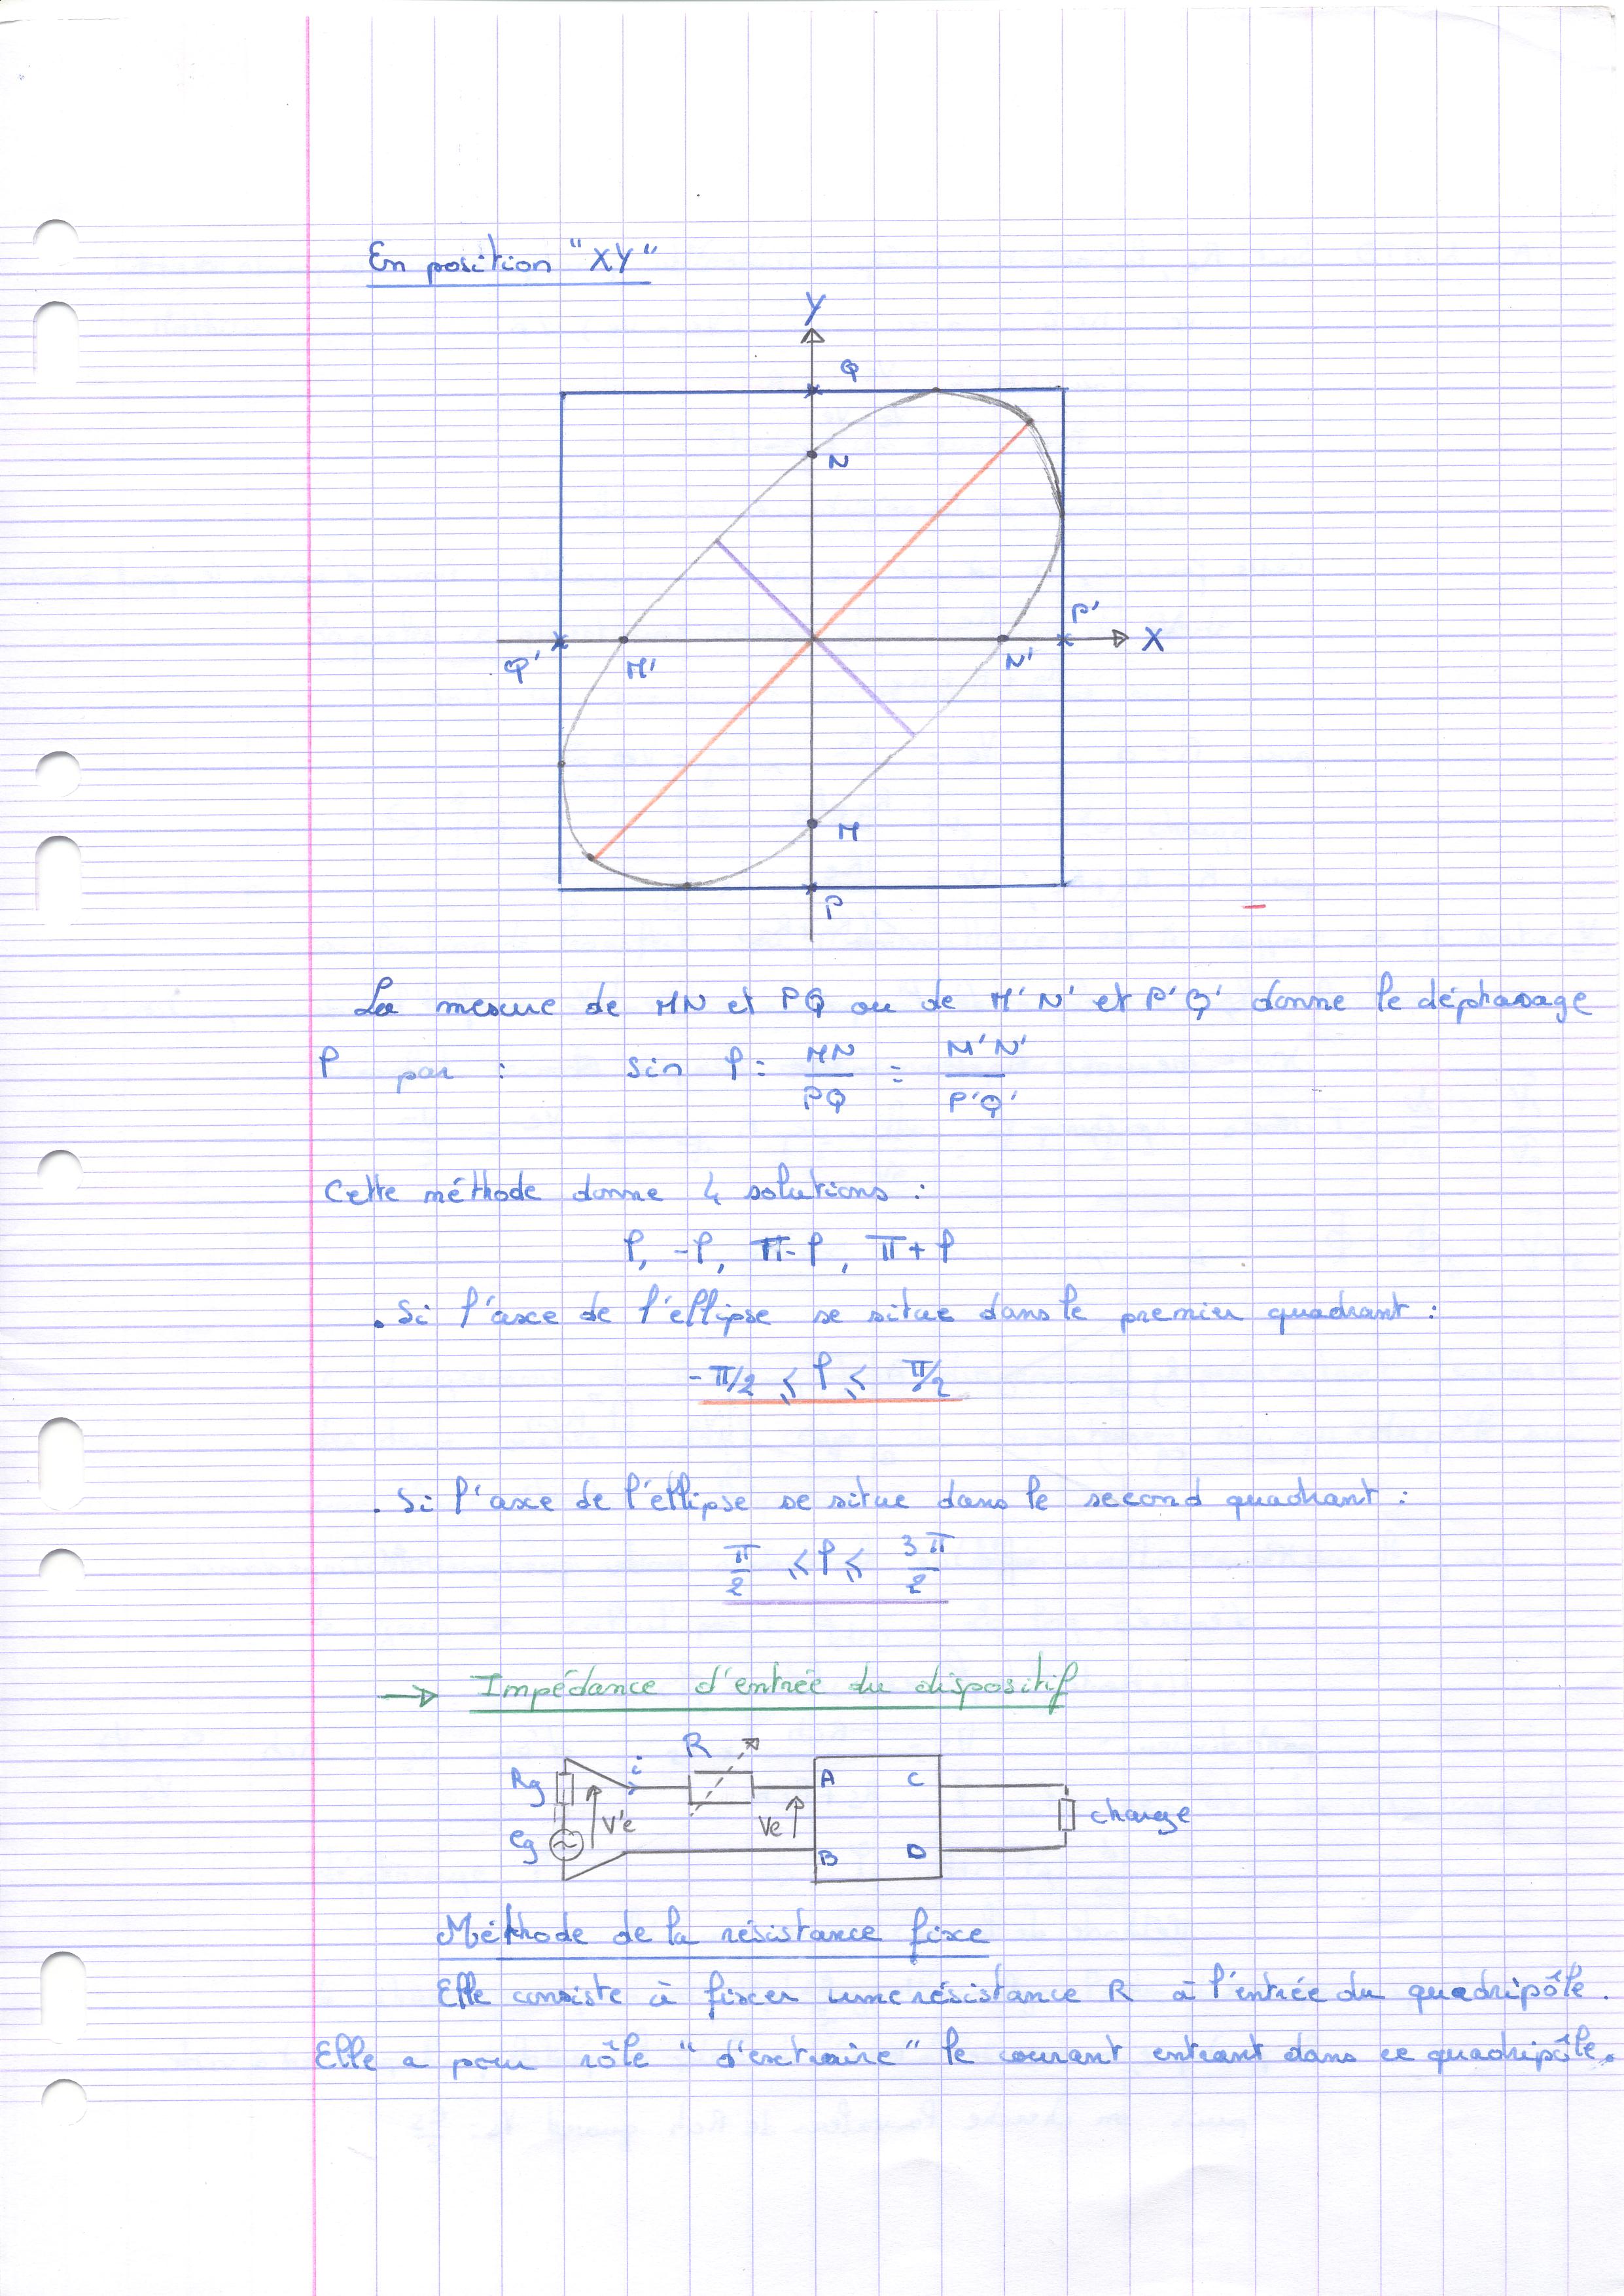 En position "XY"
Y
Q
N
P'
X
Q'
M'
N'
M
P
La mesure de MN et PQ ou de M'N' et P'Q' donne le déphasage
φ par : sin φ = MN/PQ = M'N'/P'Q'
Cette méthode donne 4 solutions :
φ, -φ, π-φ, π+φ
. Si l'axe de l'ellipse se situe dans le premier quadrant :
-π/2 ≤ φ ≤ π/2
. Si l'axe de l'ellipse se situe dans le second quadrant :
π/2 ≤ φ ≤ 3π/2
→ Impédance d'entrée du dispositif
R
i
Rg
A
C
V'e
Ve
charge
eg
B
D
Méthode de la résistance fixe
Elle consiste à fixer une résistance R à l'entrée du quadripôle.
Elle a pour rôle "d'extraire" le courant entrant dans ce quadripôle.